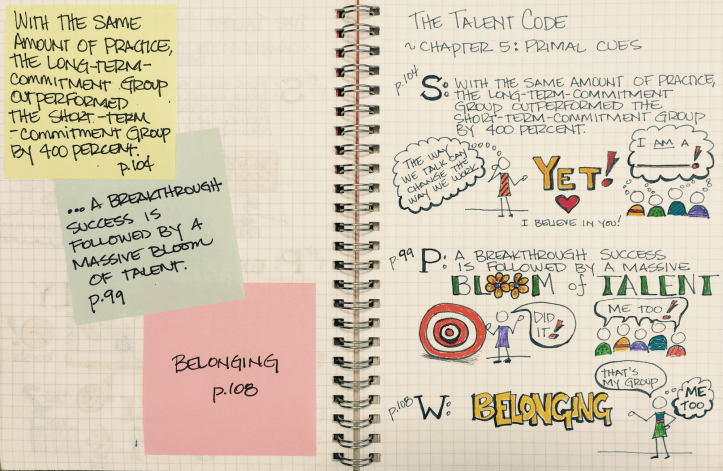 WITH THE SAME
AMOUNT OF PRACTICE,
THE LONG-TERM-
COMMITMENT GROUP
OUTPERFORMED
THE SHORT-TERM
-COMMITMENT GROUP
BY 400 PERCENT.
p.104
... A BREAKTHROUGH
SUCCESS IS
FOLLOWED BY A
MASSIVE BLOOM
OF TALENT.
p.99
BELONGING
p.108
THE TALENT CODE
~ CHAPTER 5: PRIMAL CUES
p.104
S: WITH THE SAME AMOUNT OF PRACTICE,
THE LONG-TERM-COMMITMENT
GROUP OUTPERFORMED THE
SHORT-TERM-COMMITMENT GROUP
BY 400 PERCENT.
THE WAY
WE TALK CAN
CHANGE THE
WAY WE WORK
YET!
I BELIEVE IN YOU!
I AM A
______!
p.99
P: A BREAKTHROUGH SUCCESS
IS FOLLOWED BY A MASSIVE
BLOOM of TALENT
I DID
IT!
ME TOO!
p.108
W: BELONGING
THAT'S
MY GROUP
ME
TOO